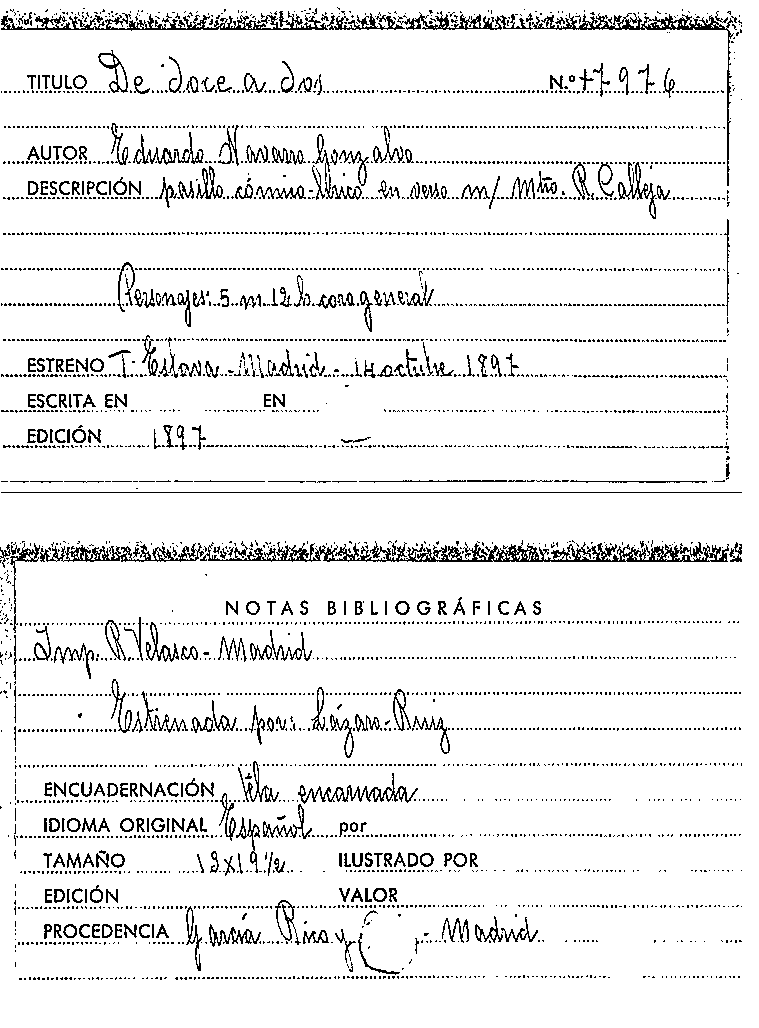 TITULO De doce a dos N.º 47976
AUTOR Eduardo Navarro Gonzalvo
DESCRIPCIÓN pasillo cómico-lírico en verso m/ Mtro. R. Calleja
Personajes: 5 m 12 h coro general
ESTRENO T. Eslava - Madrid - 14 octubre 1897
ESCRITA EN EN
EDICIÓN 1897 —
NOTAS BIBLIOGRÁFICAS
Imp. R. Velasco - Madrid
Estrenada por: Lázaro - Ruiz
ENCUADERNACIÓN Tela encarnada
IDIOMA ORIGINAL Español por
TAMAÑO 13x19 1/2 ILUSTRADO POR
EDICIÓN VALOR
PROCEDENCIA García Rico y - Madrid